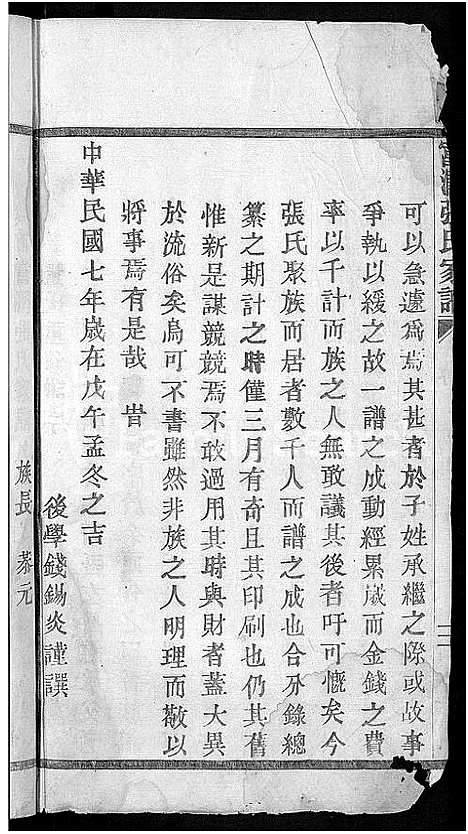 張氏家譜
可以急遽爲焉其甚者於子姓承繼之際或故事
爭執以緩之故一譜之成動經累歲而金錢之費
率以千計而族之人無敢議其後者吁可慨矣今
張氏聚族而居者數千人而譜之成也合分錄總
纂之期計之時僅三月有奇且其印刷也仍其舊
惟新是謀競競焉不敢過用其時與財者蓋大異
於流俗矣烏可不書雖然非族之人明理而敬以
將事焉有是哉 旹
中華民國七年歲在戊午孟冬之吉
後學錢錫炎謹譔
族長 元